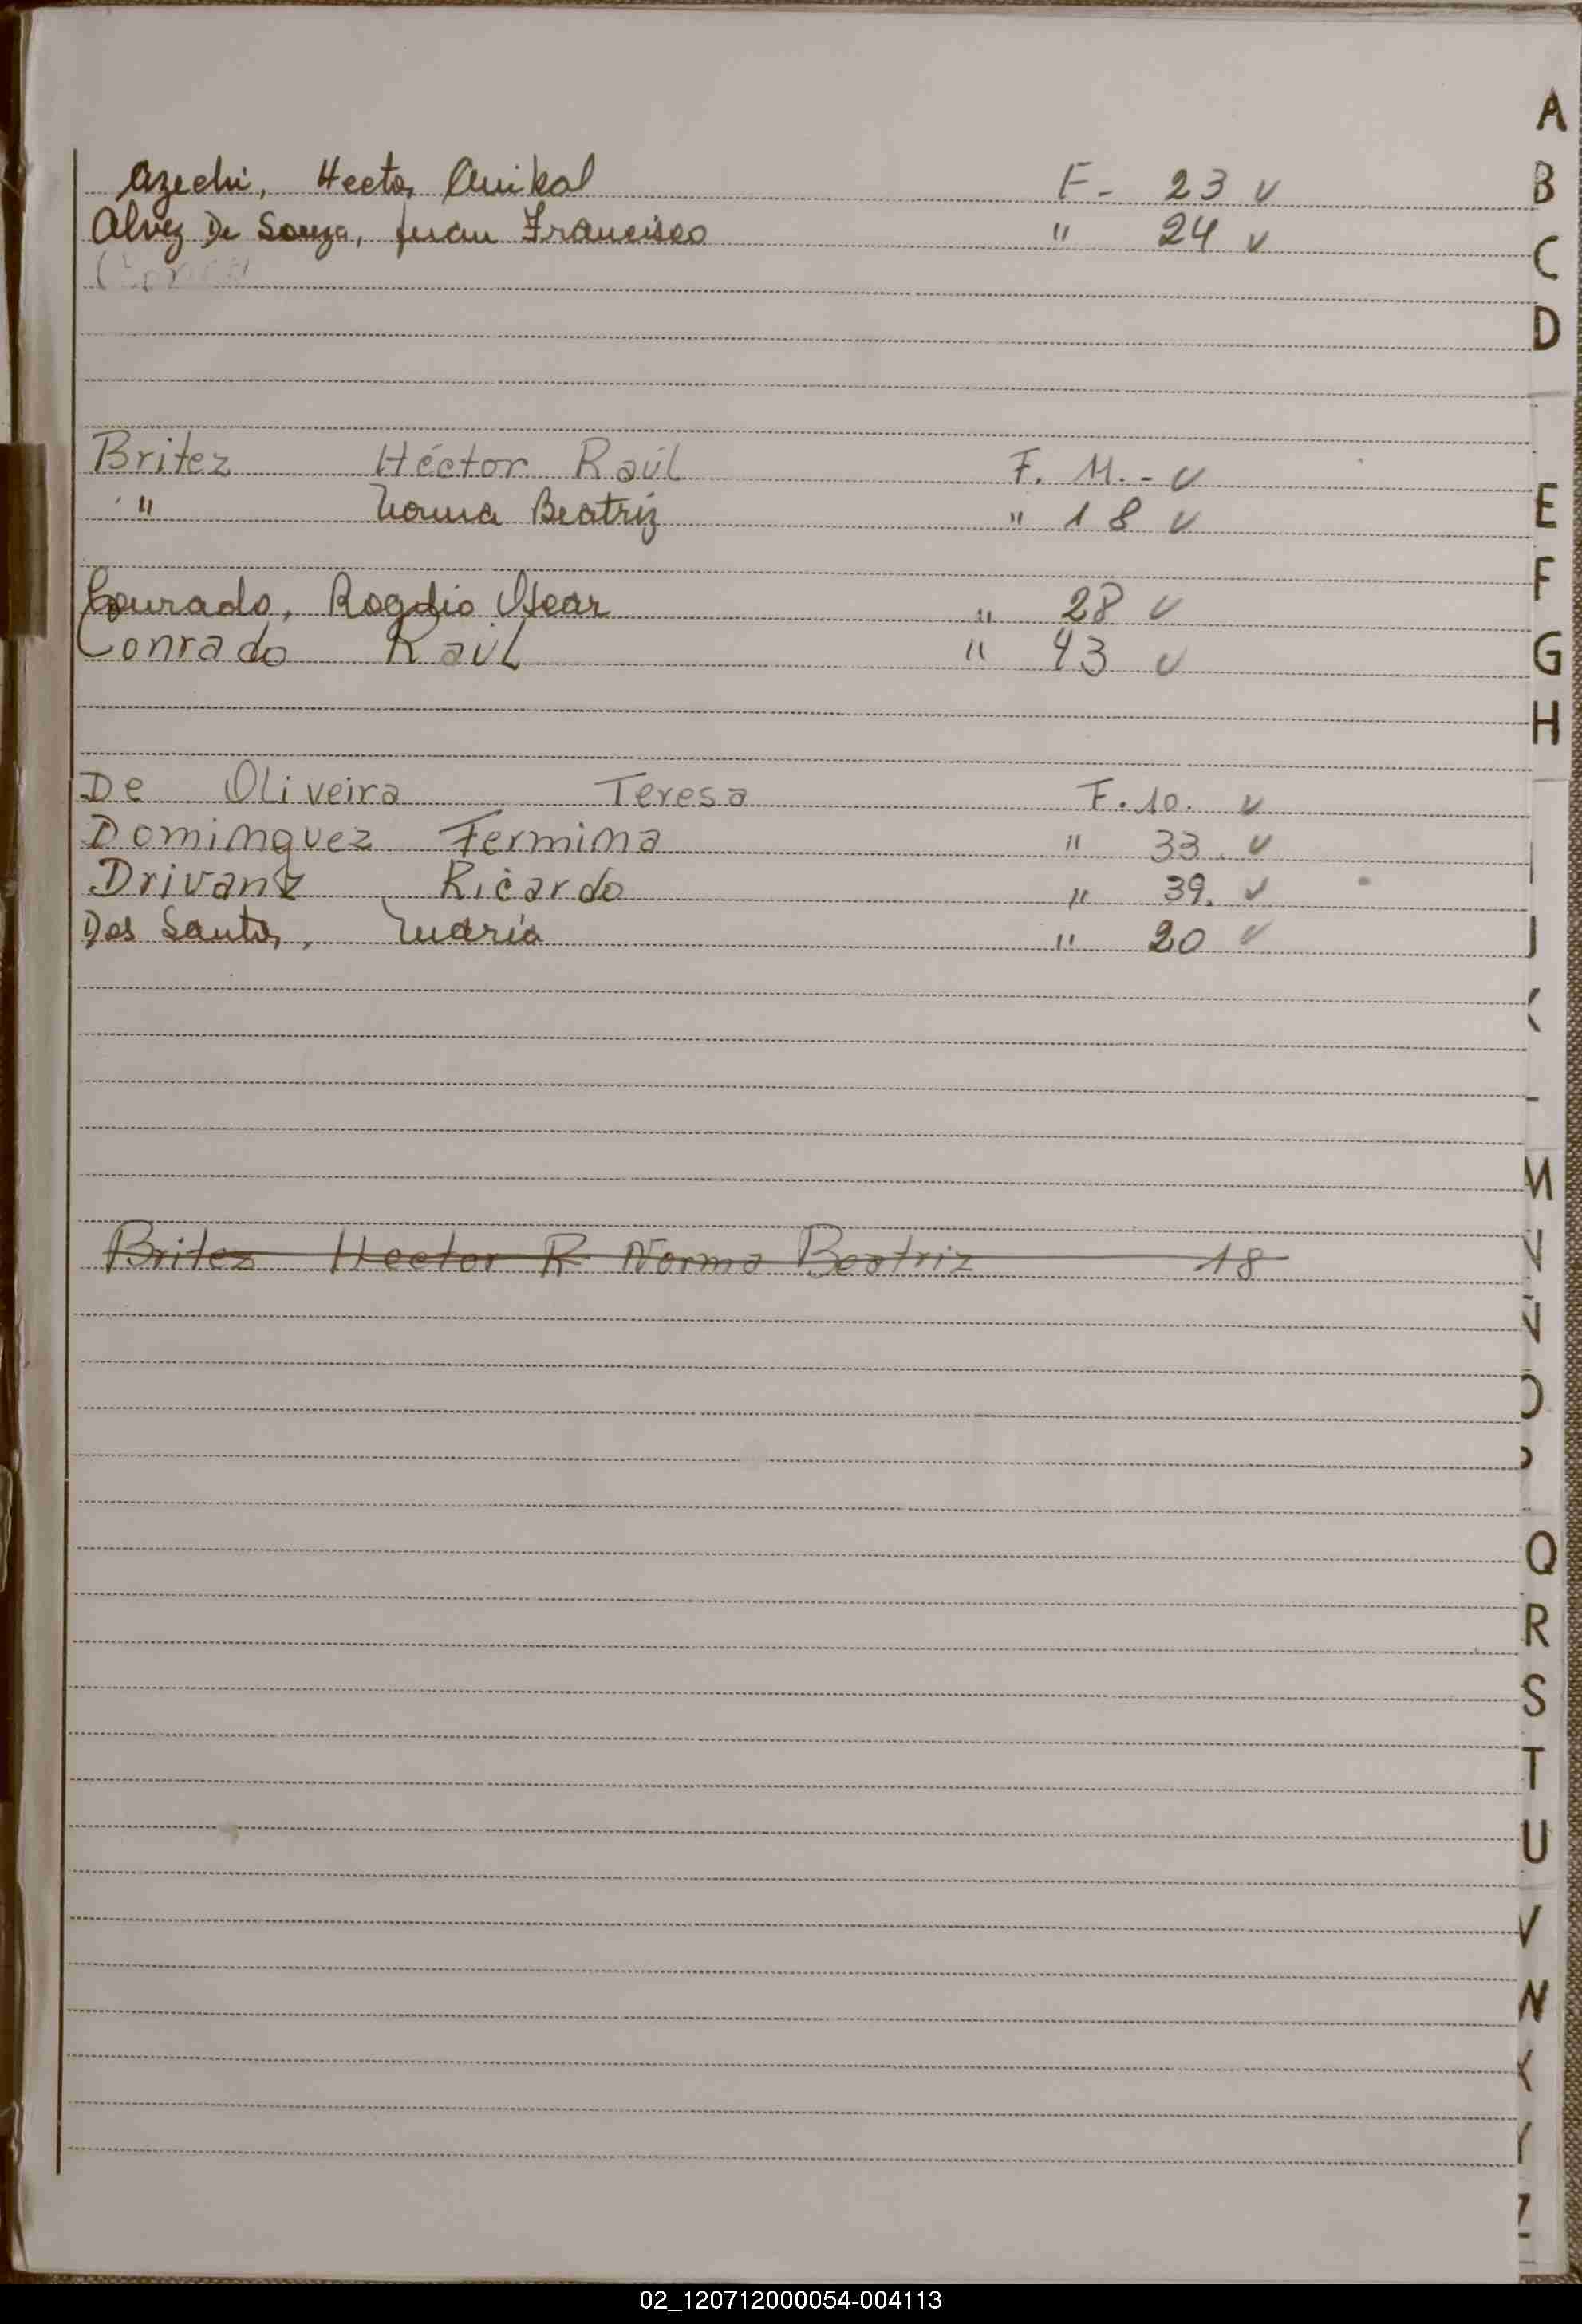 Azechi, Hector Anibal F- 23 v
Alvez De Souza, Juan Francisco " 24 v
Britez Héctor Raúl F. 11.- v
" Norma Beatriz " 18 v
Conrado, Rogelio Oscar " 28 v
Conrado Raúl " 43 v
De Oliveira Teresa F. 10. v
Dominguez Fermina " 33. v
Drivant Ricardo " 39. v
Dos Santos, María " 20 v
Britez Hector R Norma Beatriz 18
A
B
C
D
E
F
G
H
I
J
K
L
M
N
Ñ
O
P
Q
R
S
T
U
V
W
X
Y
Z
02_120712000054-004113